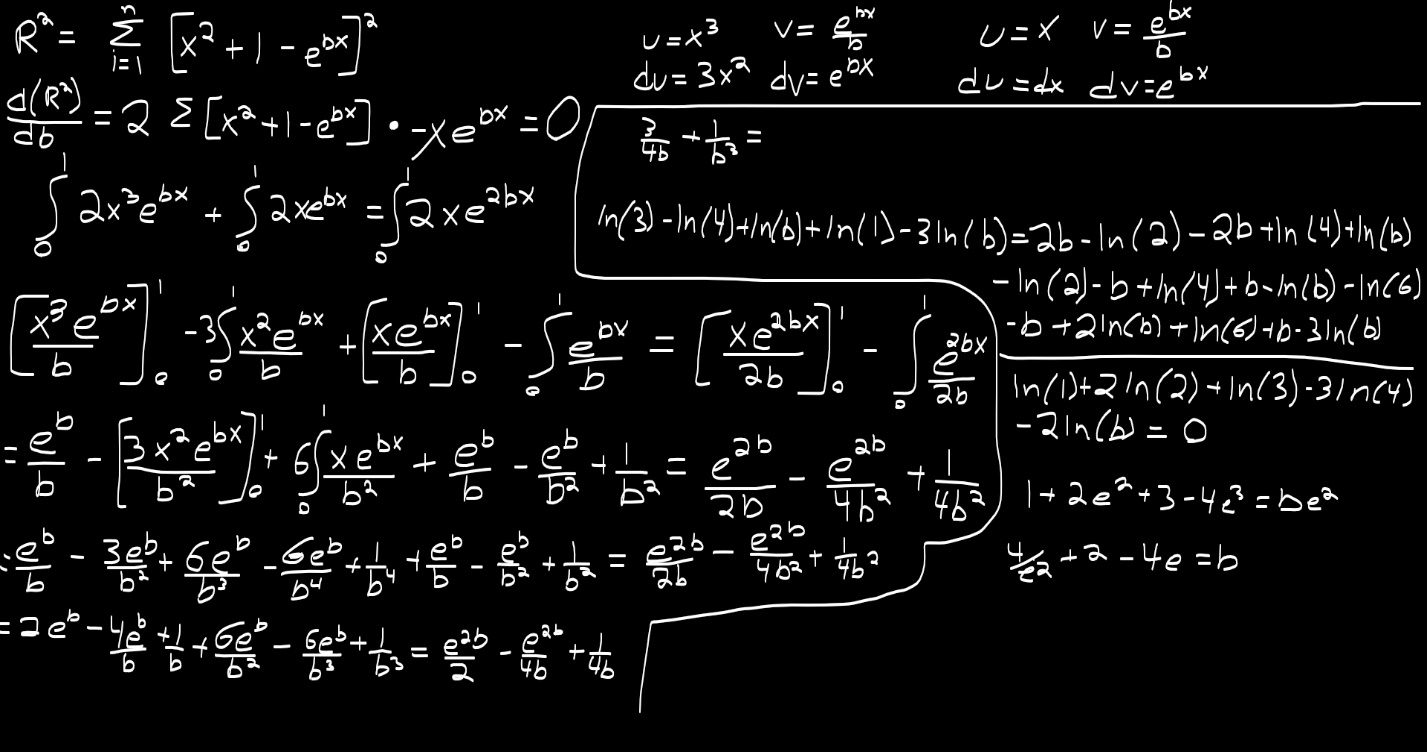 R² = Σ_{i=1}^{n} [x² + 1 - e^{bx}]²
d(R²)/db = 2 Σ [x² + 1 - e^{bx}] • -xe^{bx} = 0
∫₀¹ 2x³e^{bx} + ∫₀¹ 2xe^{bx} = ∫₀¹ 2xe^{2bx}
[x³e^{bx}/b]₀¹ - 3∫₀¹ x²e^{bx}/b + [xe^{bx}/b]₀¹ - ∫₀¹ e^{bx}/b = [xe^{2bx}/2b]₀¹ - ∫₀¹ e^{2bx}/2b
= e^b/b - [3x²e^{bx}/b²]₀¹ + 6∫₀¹ xe^{bx}/b² + e^b/b - e^b/b² + 1/b² = e^{2b}/2b - e^{2b}/4b² + 1/4b²
e^b/b - 3e^b/b² + 6e^b/b³ - 6e^b/b⁴ + 1/b⁴ + e^b/b - e^b/b² + 1/b² = e^{2b}/2b - e^{2b}/4b² + 1/4b²
= 2e^b - 4e^b/b + 1/b + 6e^b/b² - 6e^b/b³ + 1/b³ = e^{2b}/2 - e^{2b}/4b + 1/4b
u = x³ v = e^{bx}/b
du = 3x² dv = e^{bx}
u = x v = e^{bx}/b
du = dx dv = e^{bx}
3/4b + 1/b³ =
ln(3) - ln(4) + ln(b) + ln(1) - 3ln(b) = 2b - ln(2) - 2b + ln(4) + ln(b)
- ln(2) - b + ln(4) + b - ln(b) - ln(6)
- b + 2ln(b) + ln(6) + b - 3ln(b)
ln(1) + 2ln(2) + ln(3) - 3ln(4)
- 2ln(b) = 0
1 + 2e² + 3 - 4e³ = be²
4/e² + 2 - 4e = b